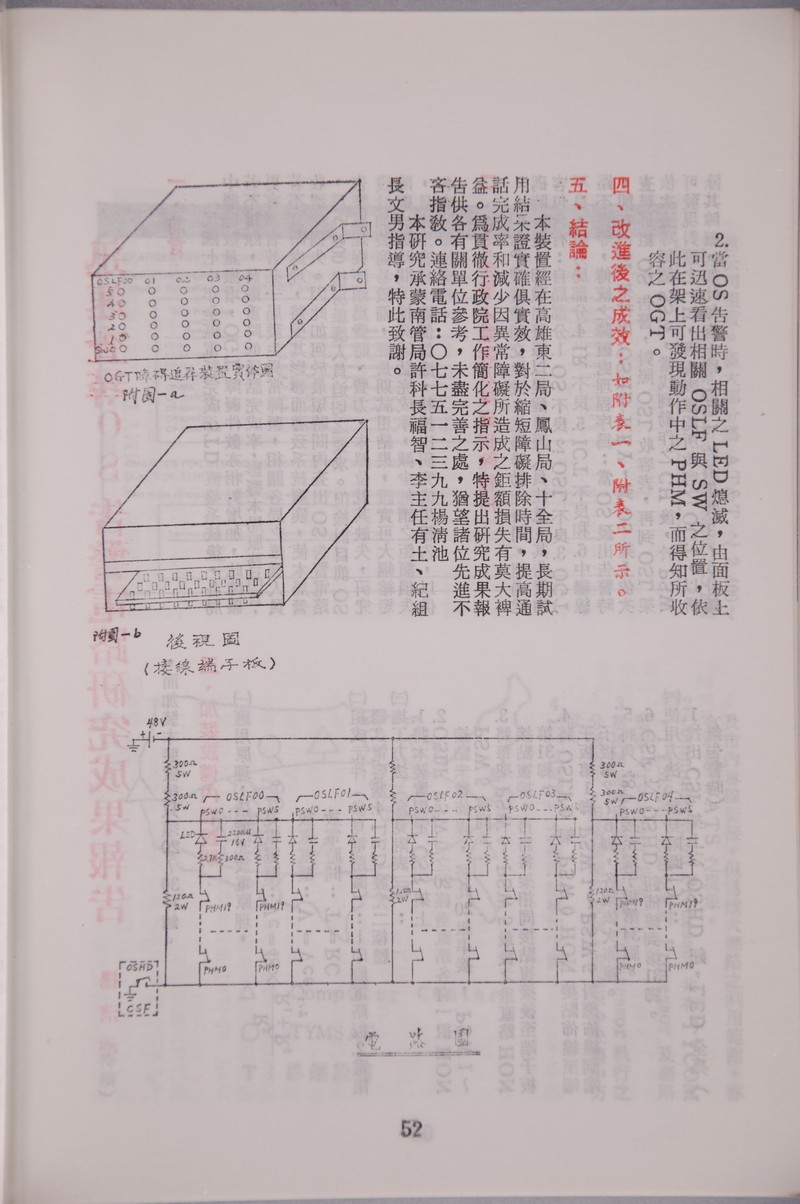 2.當OS告警時，相關之LED熄滅，由面板上
可迅速看出相關OSLF與SW之位置，依
此在架上可發現動作中之PHM，而得知所收
容之OGT。
四、改進後之成效：如附表一、附表二所示。
五、結論：
本裝置經在高雄東二局、鳳山局、十全局，長期試
用結果證實確俱實效，對於縮短障礙排除時間，提高通
話完成率和減少因異常障礙所造成之鉅額損失有莫大裨
益。爲貫徹行政院工作簡化之指示，特提出研究成果報
告供各有關單位參考，未盡完善之處，猶望諸位先進不
吝指敎。連絡電話：〇七七五一二三九九楊淸池
本研究承蒙南管局許科長福智、李主任有土、紀組
長文男指導，特此致謝。
OSLF00 01 02 03 04
5 O O O O O
4 O O O O O
3 O O O O O
2 O O O O O
1 O O O O O
SW0 O O O O O
OGT障碍追踪裝置實体圖
附圖一a
附圖一b 後視圖
(接線端子板)
48V
300Ω 5W
300Ω 5W
300Ω 5W
300Ω 5W
OSLF00 OSLF01 OSLF02 OSLF03 OSLF04
PSW0 --- PSW5 PSW0 --- PSW5 PSW0 --- PSW5 PSW0 --- PSW5 PSW0 --- PSW5
LED 2200μ 16V
300Ω
130Ω 2W
PHM19 PHM19 PHM19 PHM19
PHM0 PHM0 PHM0 PHM0
OSHD
CSF
電路圖
52